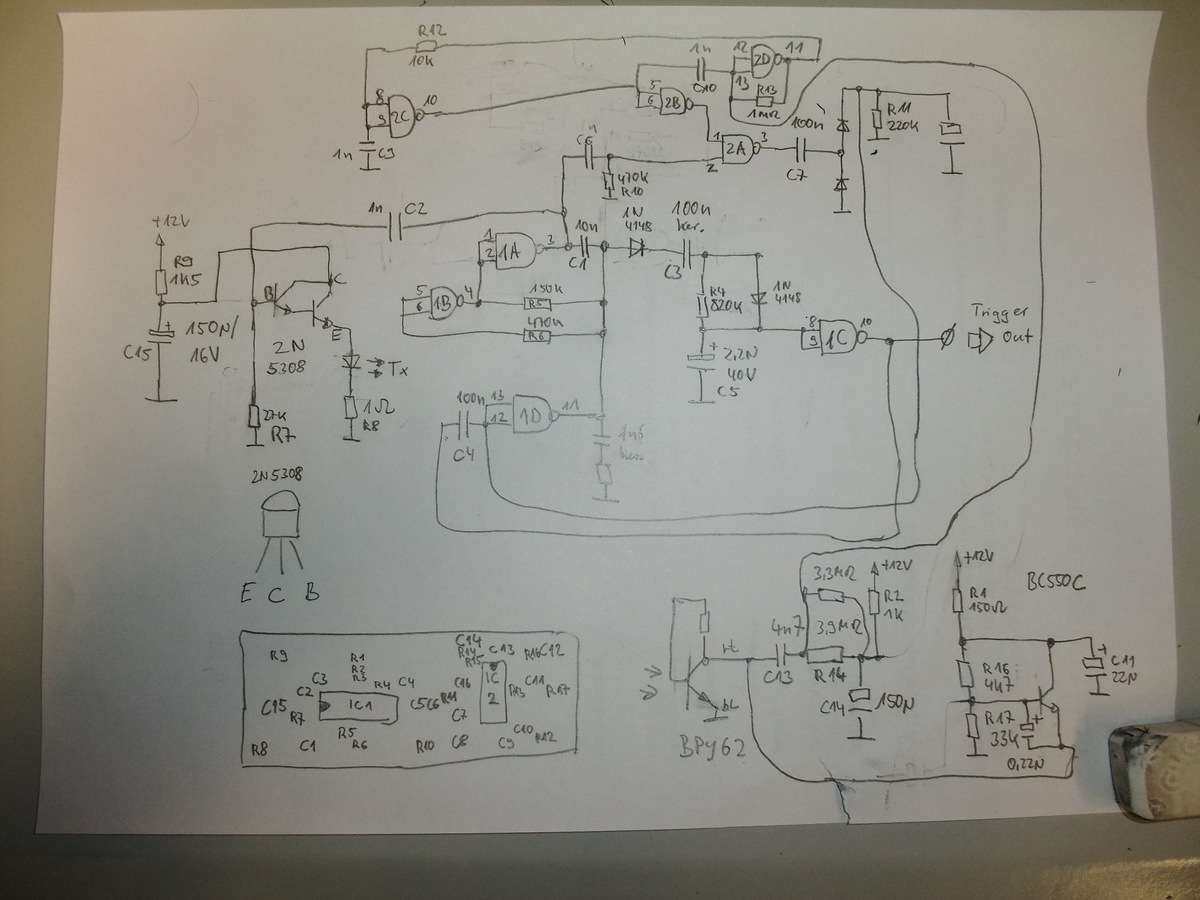 R12
10k
8
9
2C
10
1n
C9
1n
C10
12
13
2D
11
5
6
2B
R13
1MΩ
1
2
2A
3
100n
C7
R11
220k
C6
470k
R10
+12V
R9
1k5
C15
+
150N/
16V
1n
C2
B
C
E
2N
5308
Tx
1Ω
R8
27k
R7
1
2
1A
3
10n
C1
5
6
1B
4
150k
R5
470k
R6
1N
4148
100n
ker.
C3
R4
820k
1N
4148
+
2,2N
40V
C5
8
9
1C
10
Trigger
Out
100n
C4
13
12
1D
11
1n5
ker.
2N5308
E C B
R9
C15
R8
C2
R7
C3
C1
R1
R2
R3
R4
C4
IC1
R5
R6
C5
C6
R11
R10
C14
R14
R15
C16
C7
C8
C13
IC
2
R13
C9
R16
C12
C11
R17
C10
R12
rt
bl
BPY62
4n7
C13
3,3MΩ
3,9MΩ
R14
+12V
R2
1k
C14
150N
+12V
R1
150Ω
BC550C
R16
4k7
R17
33k
+
0,22N
+
C11
22N